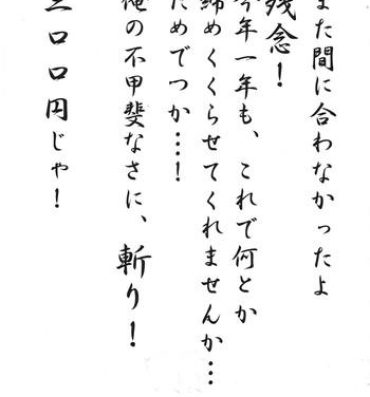 また間に合わなかったよ
残念！
今年一年も、これで何とか
締めくくらせてくれませんか…
ためでつか…！
俺の不甲斐なさに、斬り！
三ロロ円じゃ！